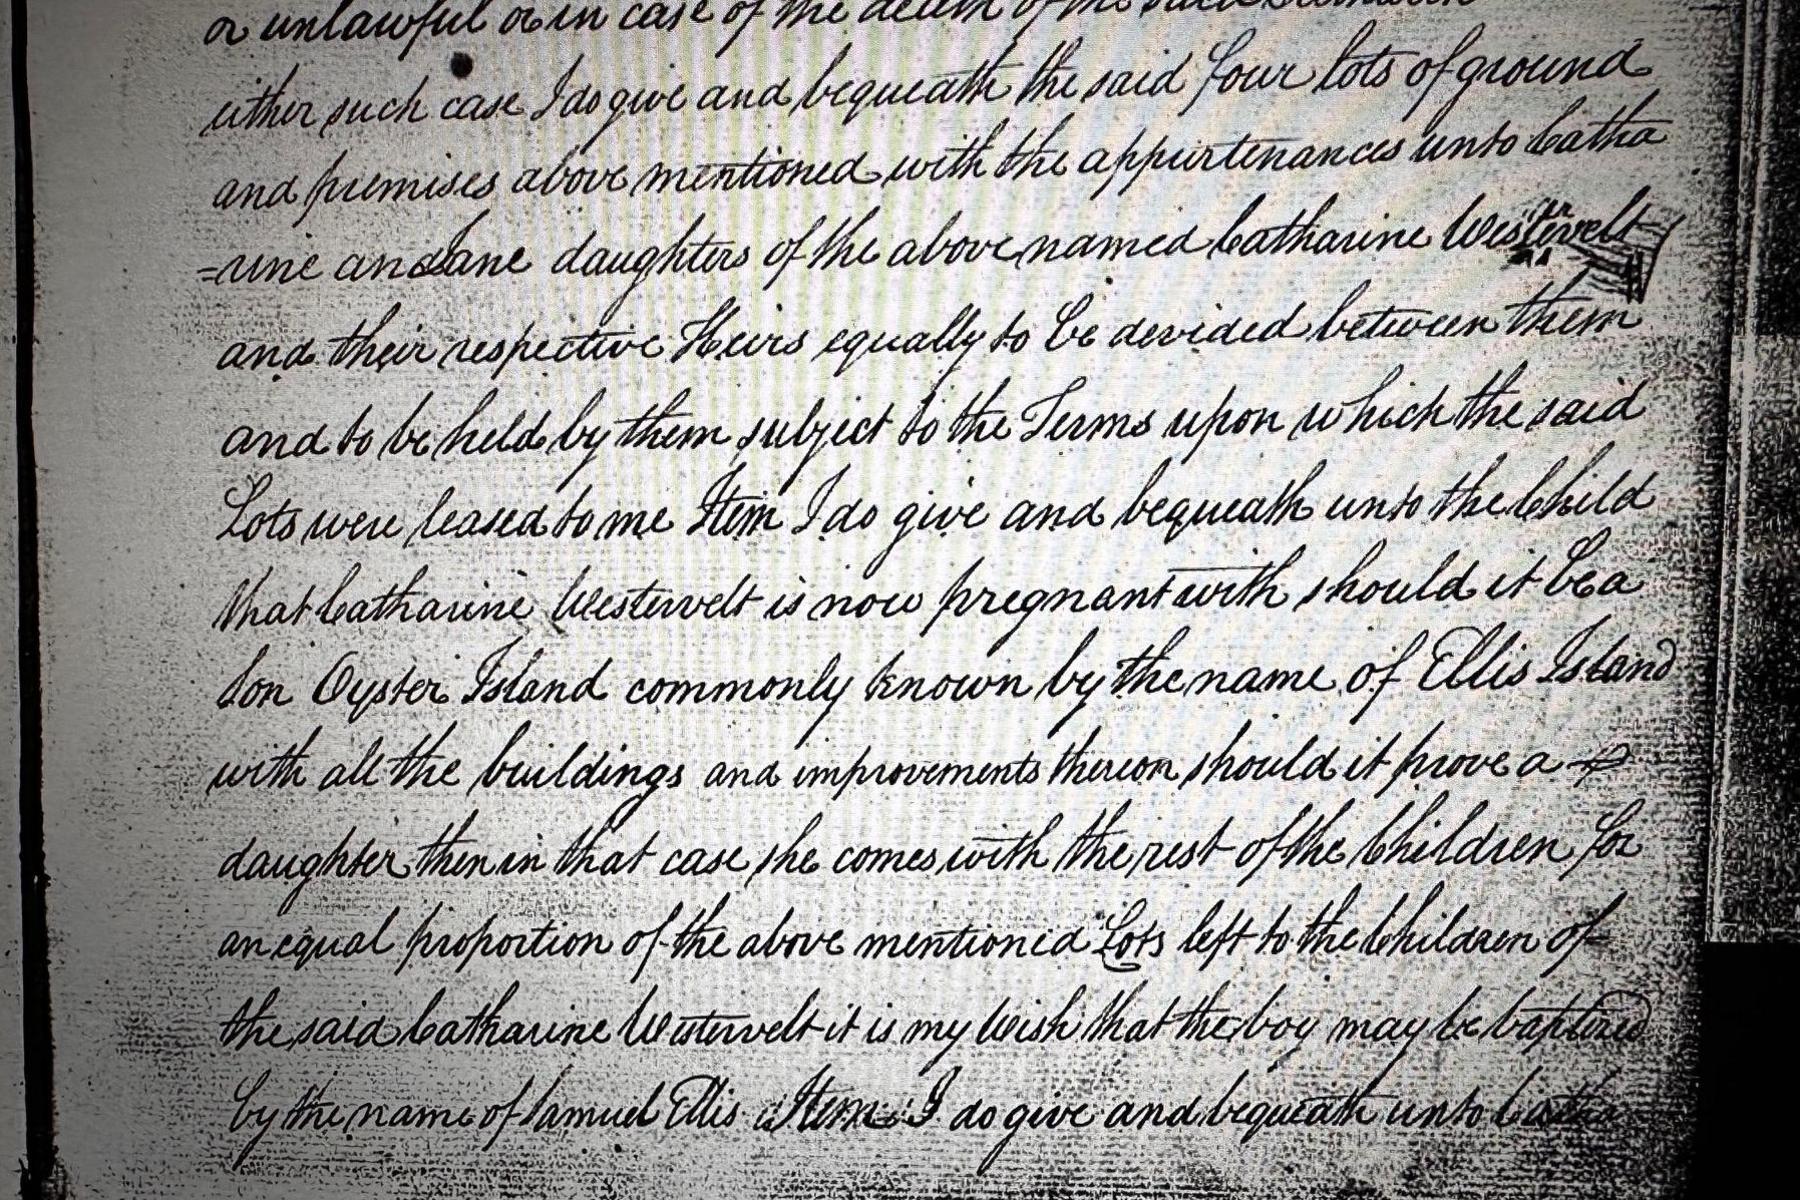 or unlawful or in case of the death of the said
either such case I do give and bequeath the said four lots of ground
and premises above mentioned with the appurtenances unto Catha
=rine and Jane daughters of the above named Catharine Westervelt
and their respective Heirs equally to be devided between them
and to be held by them subject to the Terms upon which the said
Lots were leased to me Item I do give and bequeath unto the Child
that Catharine Westervelt is now pregnant with should it be a
Son Oyster Island commonly known by the name of Ellis Island
with all the buildings and improvements thereon should it prove a
daughter then in that case she comes with the rest of the Children for
an equal proportion of the above mentioned Lots left to the Children of
the said Catharine Westervelt it is my Wish that the boy may be baptized
by the name of Samuel Ellis Item I do give and bequeath unto Catha